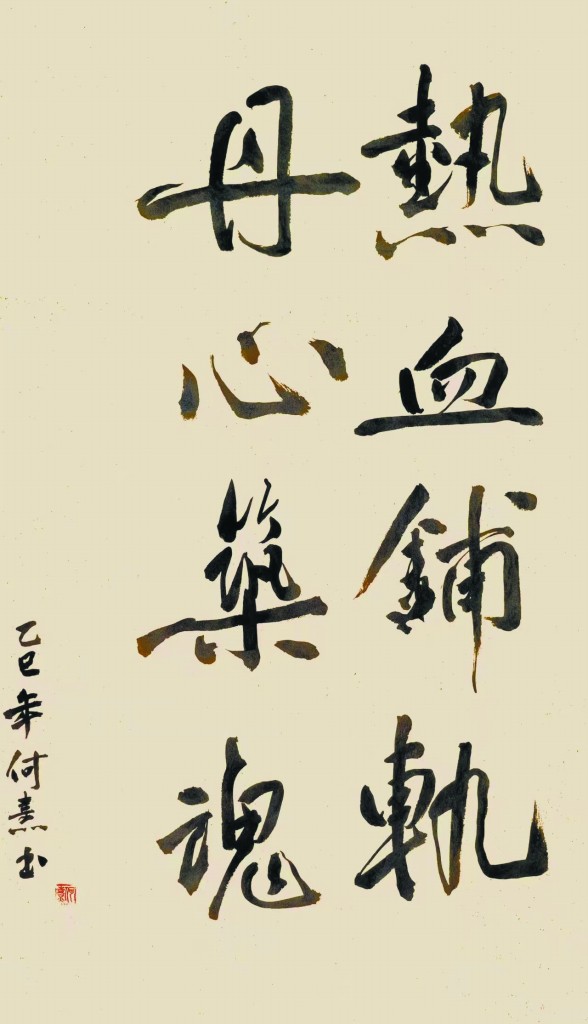 熱血鋪軌
丹心築魂
乙巳年何熹书